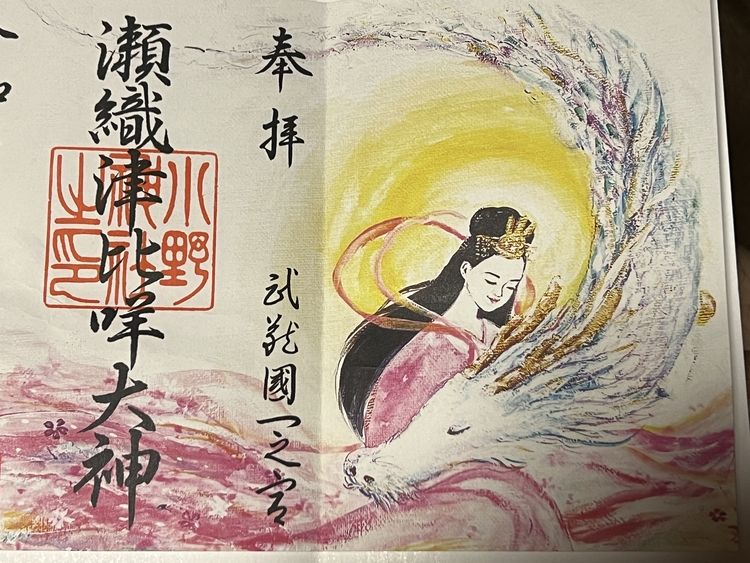 奉拝
武蔵國一之宮
瀬織津比咩大神
小野神社之印